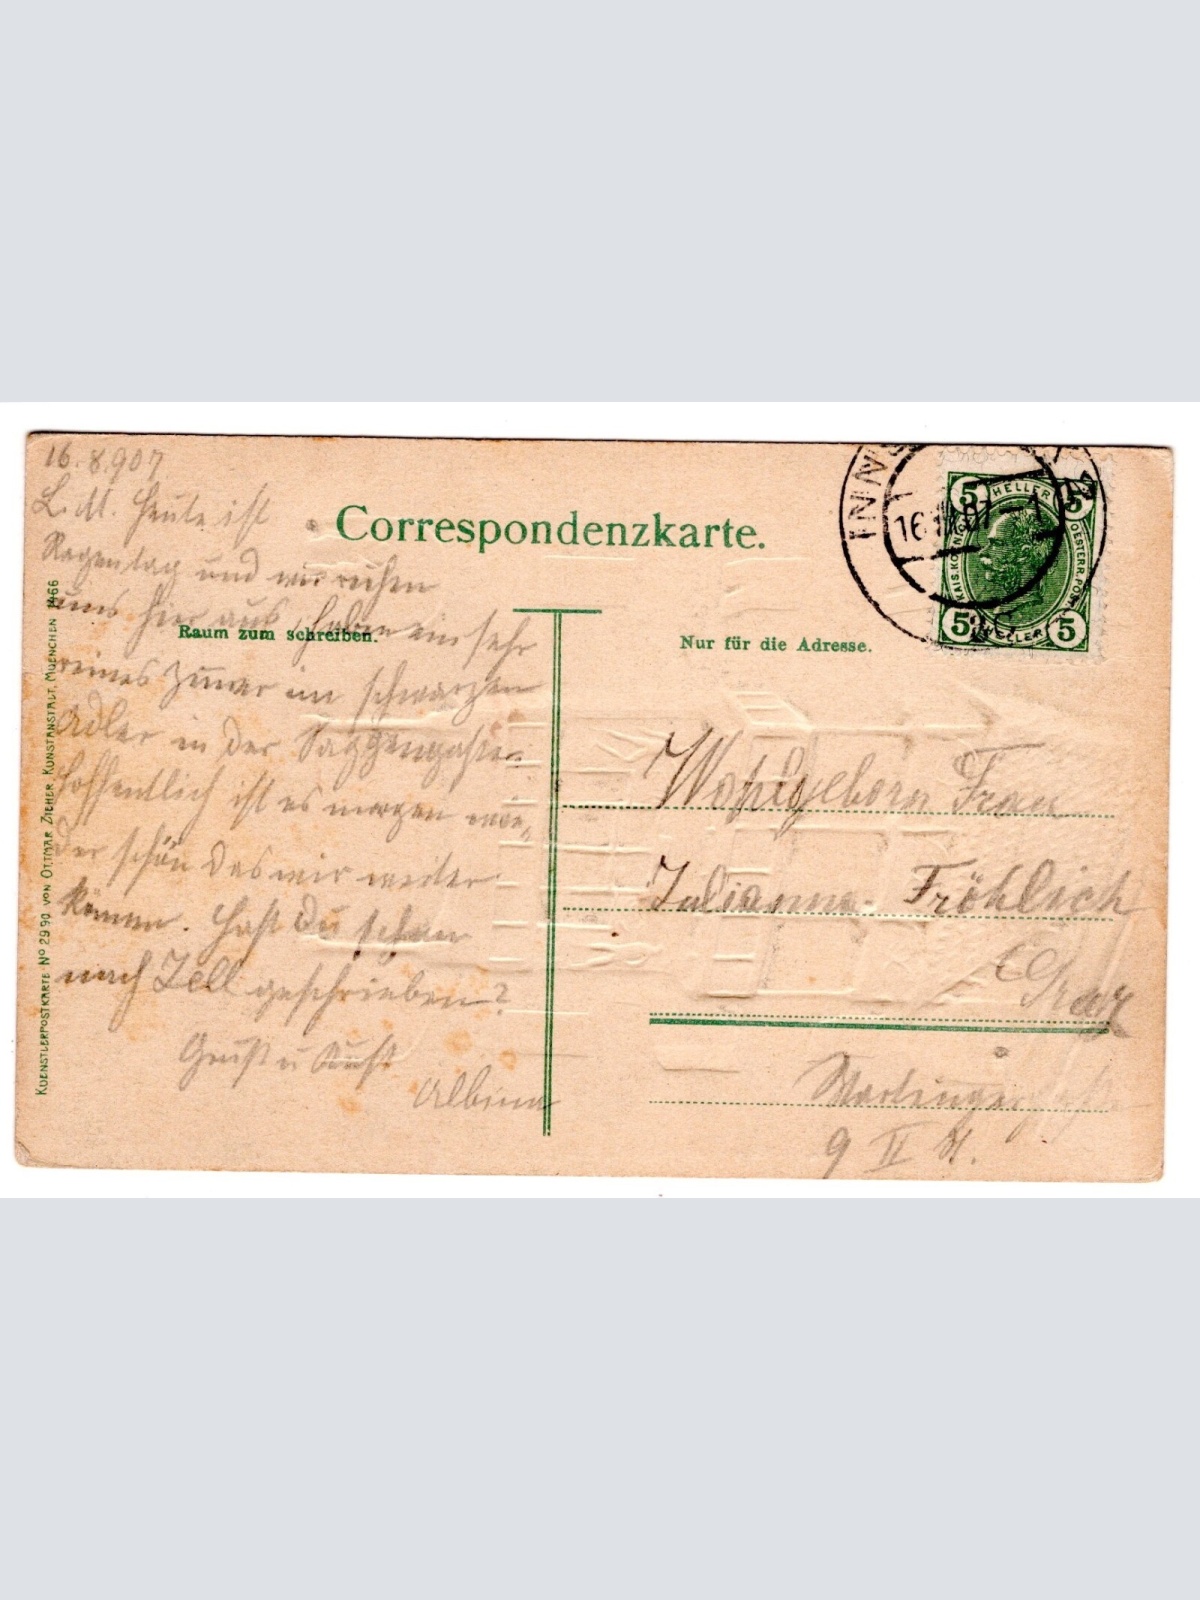 16.8.907
L. M. Heute ist
Regentag und wir ruhen
uns hier aus, haben ein sehr
reines Zimer im schwarzen
Adler in der
hoffentlich ist es morgen wie„
der schön das wir weiter
können. Hast Du schon
nach Zell geschrieben?
Gruß u Kuß
Albine
Correspondenzkarte.
Raum zum schreiben.
Nur für die Adresse.
KUENSTLERPOSTKARTE No 2990 VON OTTMAR ZIEHER, KUNSTANSTALT, MUENCHEN 1466
INNS
16. 07
5 HELLER 5
KAIS. KÖNIGL. OESTERR. POST
5 HELLER 5
Wohlgeborn Frau
Julianne Fröhlich
Graz
9 II St.